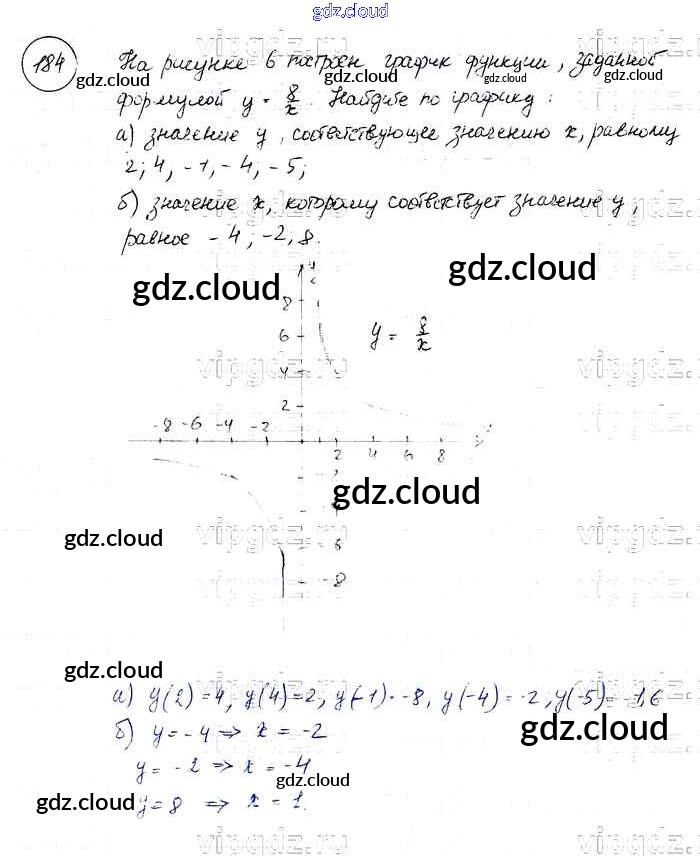 gdz.cloud
184 На рисунке 6 построен график функции, заданной
gdz.cloud gdz.cloud gdz.cloud gdz.cloud
формулой y = 8/x. Найдите по графику:
а) значение y, соответствующее значению x, равному
2; 4, -1, -4, -5;
б) значение x, которому соответствует значение y,
равное -4; -2, 8.
gdz.cloud gdz.cloud
vipgdz vipgdz.
y
8
6 y = 8/x
vipgdz vipgdz.
4
2
-8 -6 -4 -2
2 4 6 8
gdz.cloud
gdz.cloud vipgdz vipgdz.
- 6
- 8
gdz.cloud
vipgdz vipgdz.
а) y(2)=4, y(4)=2, y(-1)=-8, y(-4)=-2, y(-5)=-1,6
gdz.cloud
б) y=-4 ⇒ x = -2
y = -2 ⇒ x = -4
gdz.cloud
gdz.cloud y=8 ⇒ x = 1.
gdz.cloud
vipgdz vipgdz.